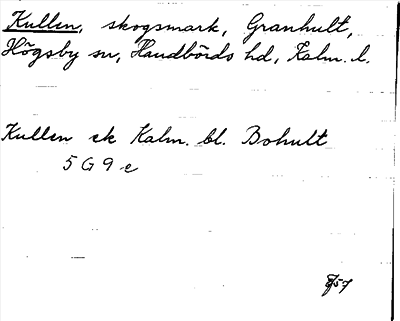 Kullen, skogsmark, Granhult,
Högsby sn, Handbörds hd, Kalm. l.
Kullen ek Kalm. bl. Bohult
5 G 9 e